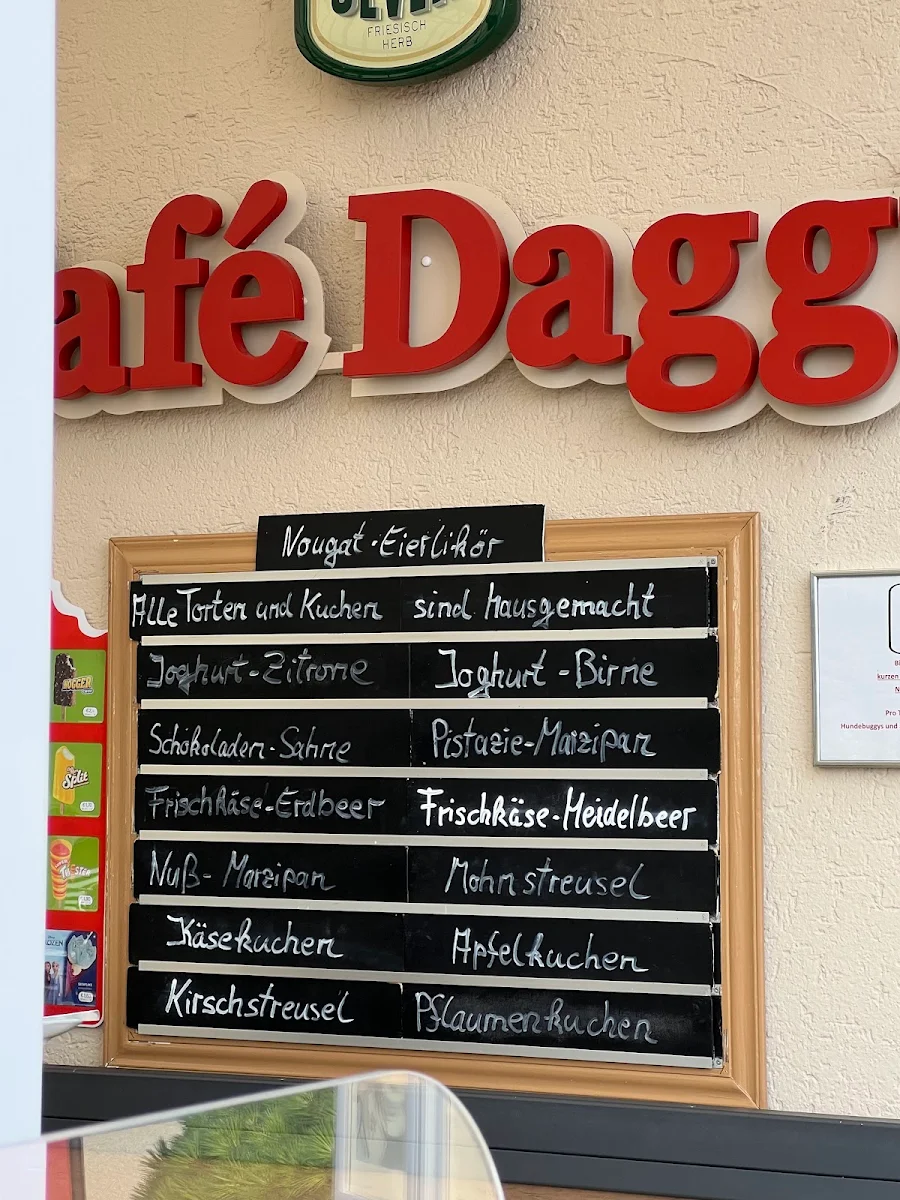 FRIESISCH
HERB
afé Dagg
Nougat-Eierlikör
Alle Torten und Kuchen sind Hausgemacht
Joghurt-Zitrone Joghurt-Birne
Schokoladen-Sahne Pistazie-Marzipan
Frischkäse-Erdbeer Frischkäse-Heidelbeer
Nuß-Marzipan Mohnstreusel
Käsekuchen Apfelkuchen
Kirschstreusel Pflaumenkuchen
NOGGER
Split
TWISTER
kurzen
Pro T
Hundebuggys und